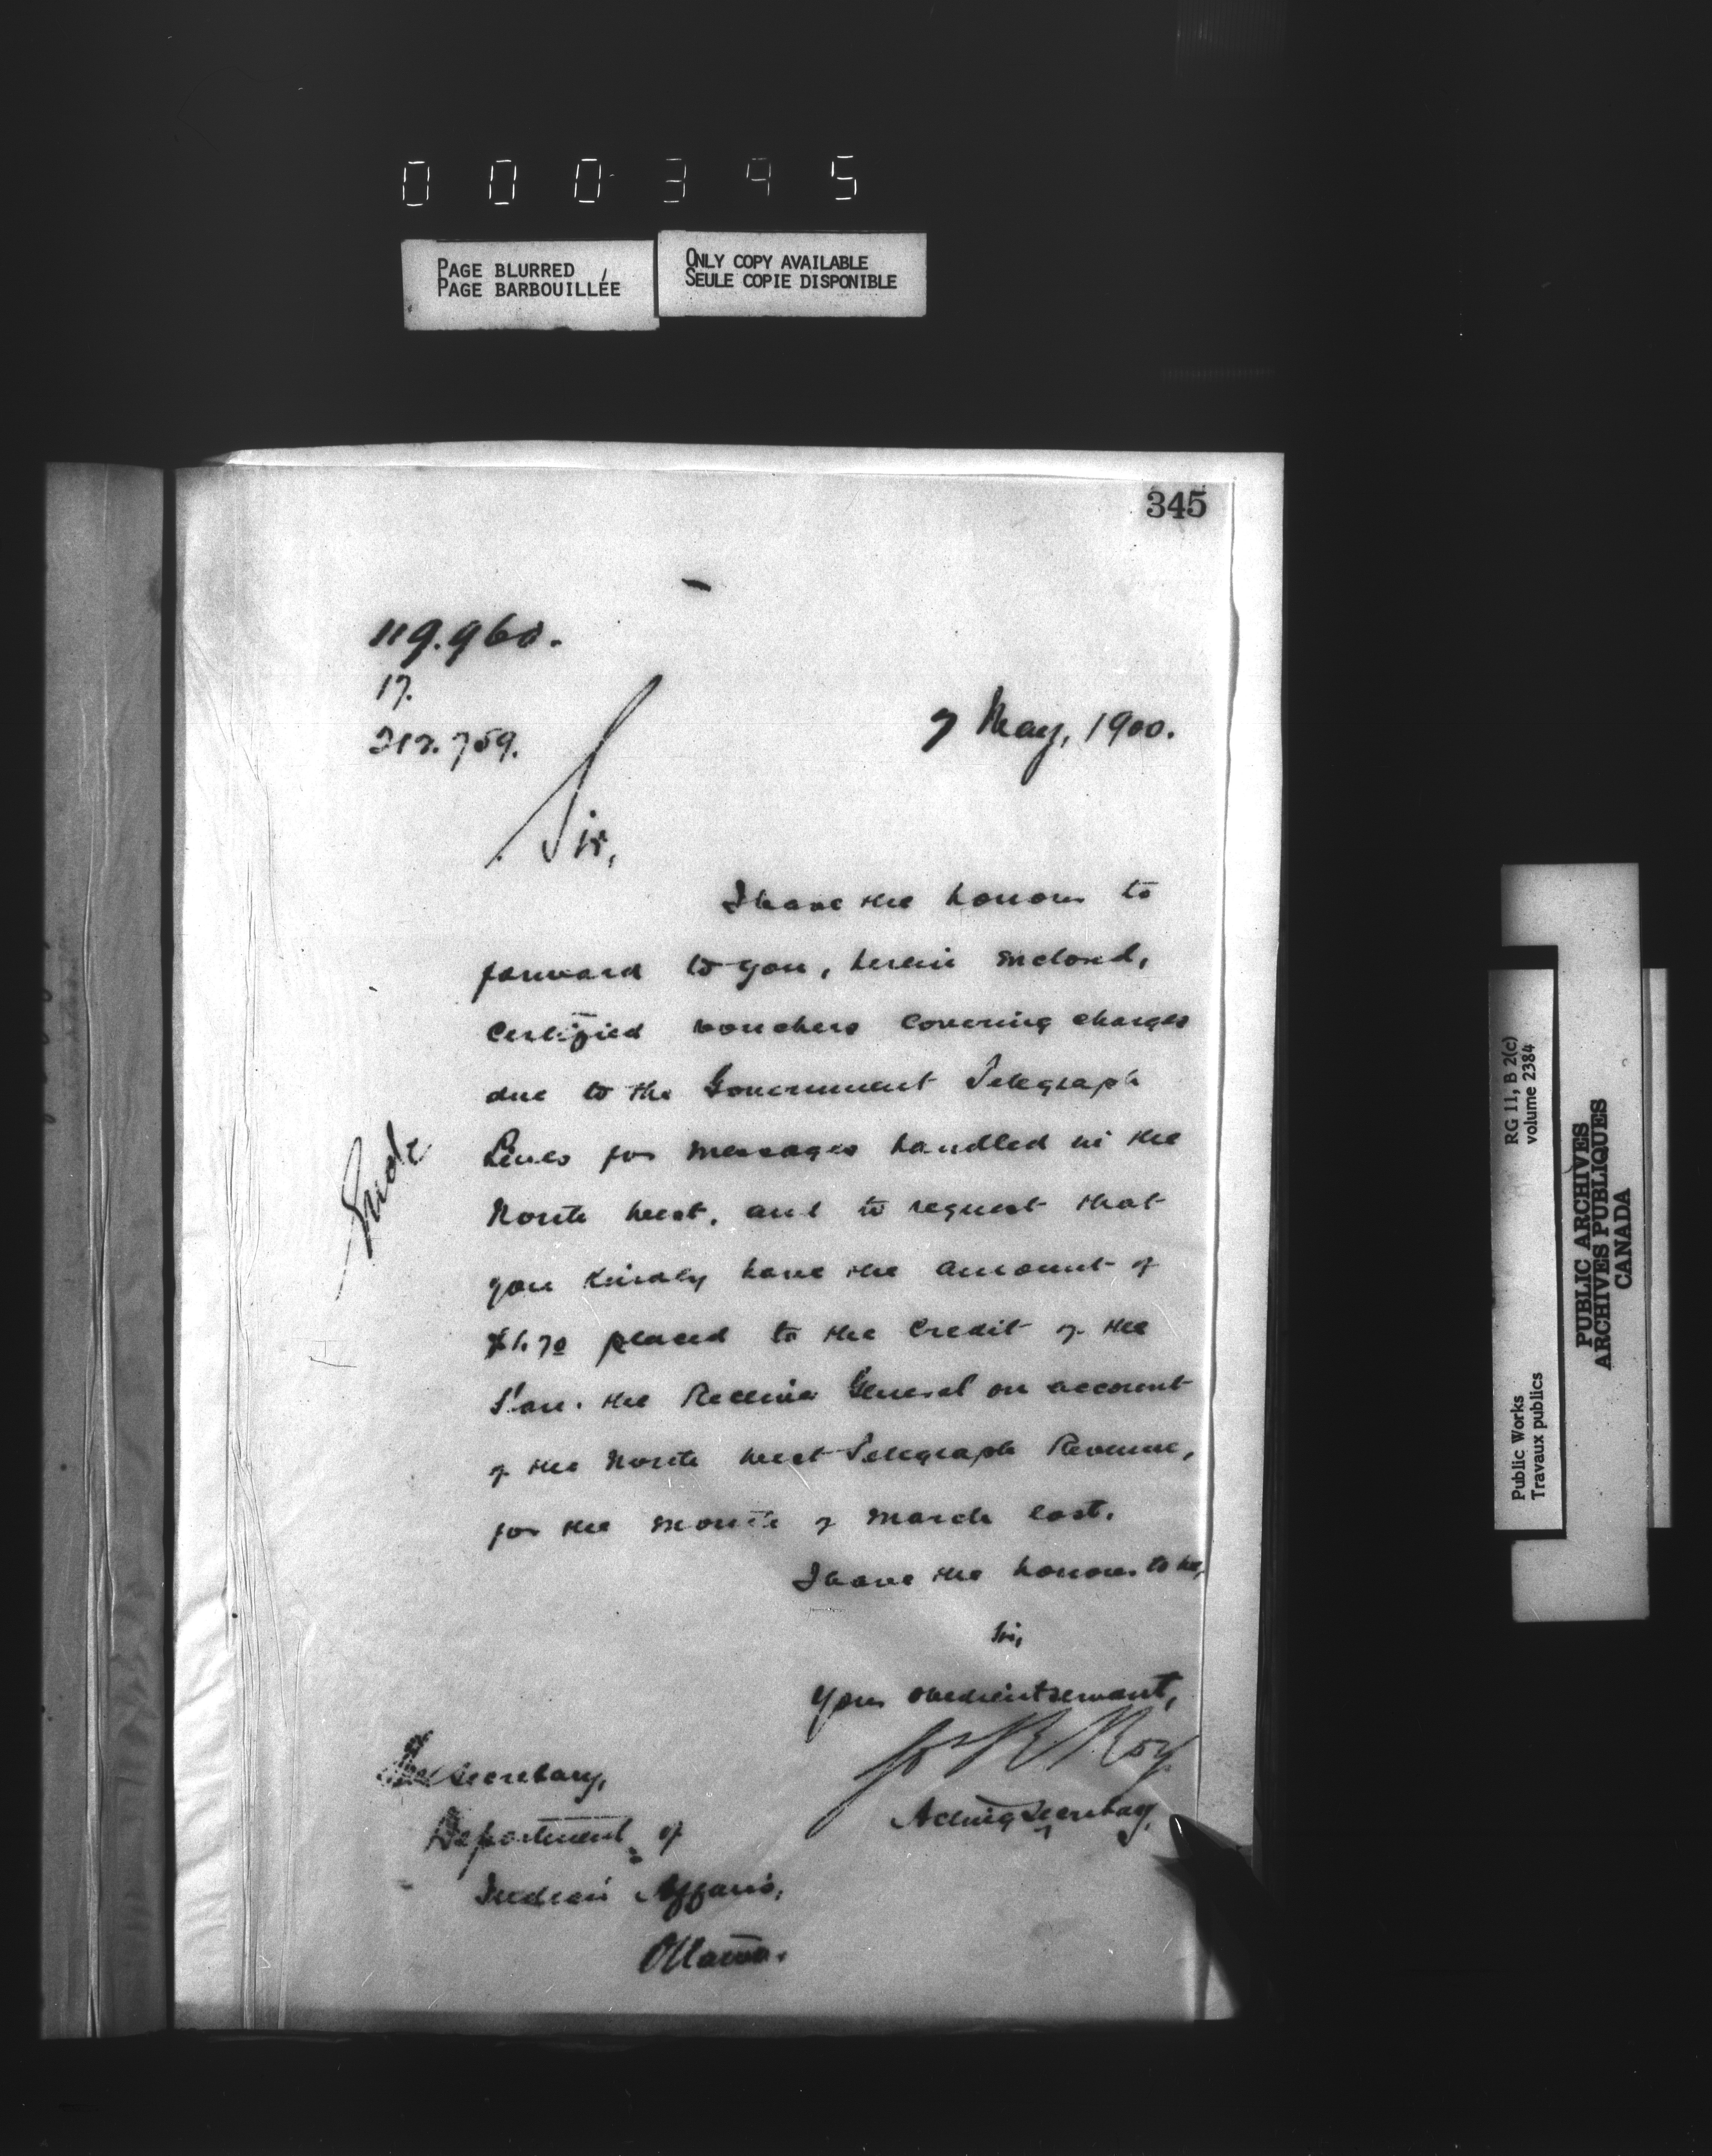 000395
PAGE BLURRED
PAGE BARBOUILLÉE
ONLY COPY AVAILABLE
SEULE COPIE DISPONIBLE
345
119.960.
17.
212.759.
7 May, 1900.
Sir,
I have the honour to
forward to you, herein enclosed,
certified vouchers covering charges
due to the Government Telegraph
Lines for messages handled in the
North West, and to request that
you kindly have the amount of
$1.70 placed to the credit of the
Hon. the Receiver General on account
of the North West Telegraph Revenue,
for the month of March last.
I have the honour to be,
Sir,
Your obedient servant,
Jos R Roy
Acting Secretary,
The Secretary,
Department of
Indian Affairs,
Ottawa.
RG 11, B 2(c)
volume 2384
Public Works
Travaux publics
PUBLIC ARCHIVES
ARCHIVES PUBLIQUES
CANADA